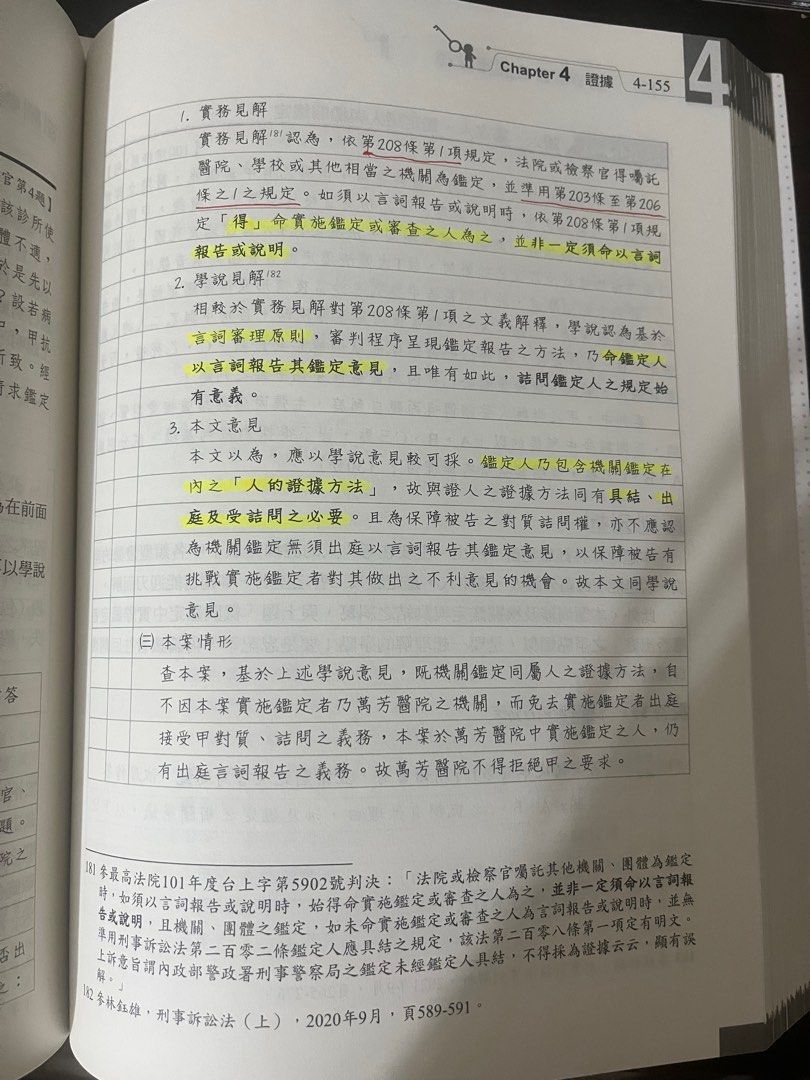 Chapter 4 證據 4-155
4
1. 實務見解
實務見解181認為,依第208條第1項規定,法院或檢察官得囑託
醫院、學校或其他相當之機關為鑑定,並準用第203條至第206
條之1之規定。如須以言詞報告或說明時,依第208條第1項規
定「得」命實施鑑定或審查之人為之,並非一定須命以言詞
報告或說明。
2. 學說見解182
相較於實務見解對第208條第1項之文義解釋,學說認為基於
言詞審理原則,審判程序呈現鑑定報告之方法,乃命鑑定人
以言詞報告其鑑定意見,且唯有如此,詰問鑑定人之規定始
有意義。
3. 本文意見
本文以為,應以學說意見較可採。鑑定人乃包含機關鑑定在
內之「人的證據方法」,故與證人之證據方法同有具結、出
庭及受詰問之必要。且為保障被告之對質詰問權,亦不應認
為機關鑑定無須出庭以言詞報告其鑑定意見,以保障被告有
挑戰實施鑑定者對其做出之不利意見的機會。故本文同學說
意見。
㈢本案情形
查本案,基於上述學說意見,既機關鑑定同屬人之證據方法,自
不因本案實施鑑定者乃萬芳醫院之機關,而免去實施鑑定者出庭
接受甲對質、詰問之義務,本案於萬芳醫院中實施鑑定之人,仍
有出庭言詞報告之義務。故萬芳醫院不得拒絕甲之要求。
181 參最高法院101年度台上字第5902號判決:「法院或檢察官囑託其他機關、團體為鑑定
時,如須以言詞報告或說明時,始得命實施鑑定或審查之人為之,並非一定須命以言詞報
告或說明,且機關、團體之鑑定,如未命實施鑑定或審查之人為言詞報告或說明時,並無
準用刑事訴訟法第二百零二條鑑定人應具結之規定,該法第二百零八條第一項定有明文。
上訴意旨謂內政部警政署刑事警察局之鑑定未經鑑定人具結,不得採為證據云云,顯有誤
解。」
182 參林鈺雄,刑事訴訟法(上),2020年9月,頁589-591。
官第4題】
該診所使
體不適,
於是先以
?設若病
中,甲抗
所致。經
請求鑑定
為在前面
以學說
答
官、
題。
院之
否出
之: